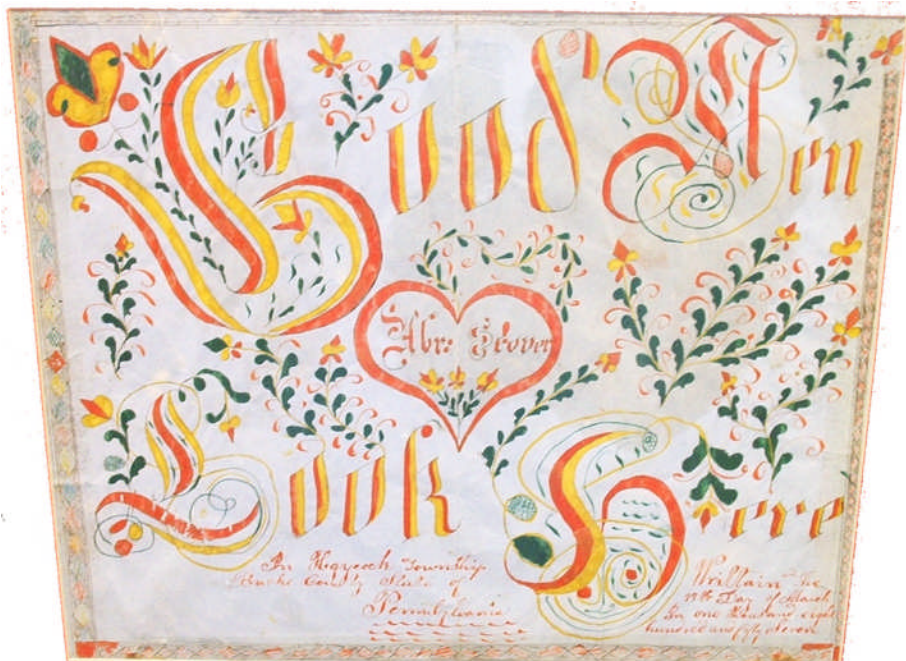 Good Men
Abr: Grover
Look Here
In Haycock Township
Bucks County State of
Pennsylvania
the
Day of March
In one thousand eight
hundred and fifty